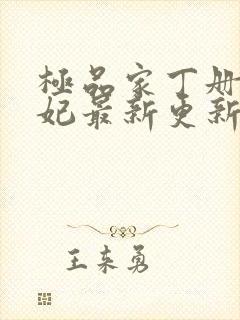 極品家丁册
妃最新更新
王来勇